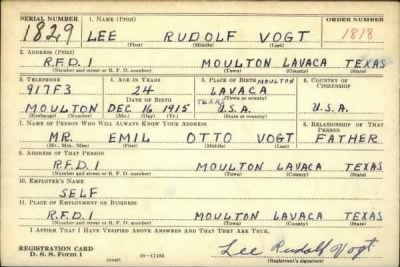 SERIAL NUMBER 1. NAME (Print) ORDER NUMBER
1829 LEE RUDOLF VOGT 1818
(First) (Middle) (Last)
2. ADDRESS (Print)
R.F.D. 1 MOULTON LAVACA TEXAS
(Number and street or R. F. D. number) (Town) (County) (State)
3. TELEPHONE 4. AGE IN YEARS 5. PLACE OF BIRTH MOULTON 6. COUNTRY OF CITIZENSHIP
917F3 24 LAVACA
DATE OF BIRTH (Town or county)
MOULTON DEC 16 1915 TEXAS U.S.A. U.S.A.
(Exchange) (Number) (Mo.) (Day) (Yr.) (State or country)
7. NAME OF PERSON WHO WILL ALWAYS KNOW YOUR ADDRESS 8. RELATIONSHIP OF THAT PERSON
MR. EMIL OTTO VOGT FATHER
(Mr., Mrs., Miss) (First) (Middle) (Last)
9. ADDRESS OF THAT PERSON
R.F.D. 1 MOULTON LAVACA TEXAS
(Number and street or R. F. D. number) (Town) (County) (State)
10. EMPLOYER'S NAME
SELF
11. PLACE OF EMPLOYMENT OR BUSINESS
R.F.D. 1 MOULTON LAVACA TEXAS
(Number and street or R. F. D. number) (Town) (County) (State)
I AFFIRM THAT I HAVE VERIFIED ABOVE ANSWERS AND THAT THEY ARE TRUE.
REGISTRATION CARD
D. S. S. Form 1 (over) 16—17105 Lee Rudolf Vogt
(Registrant's signature)